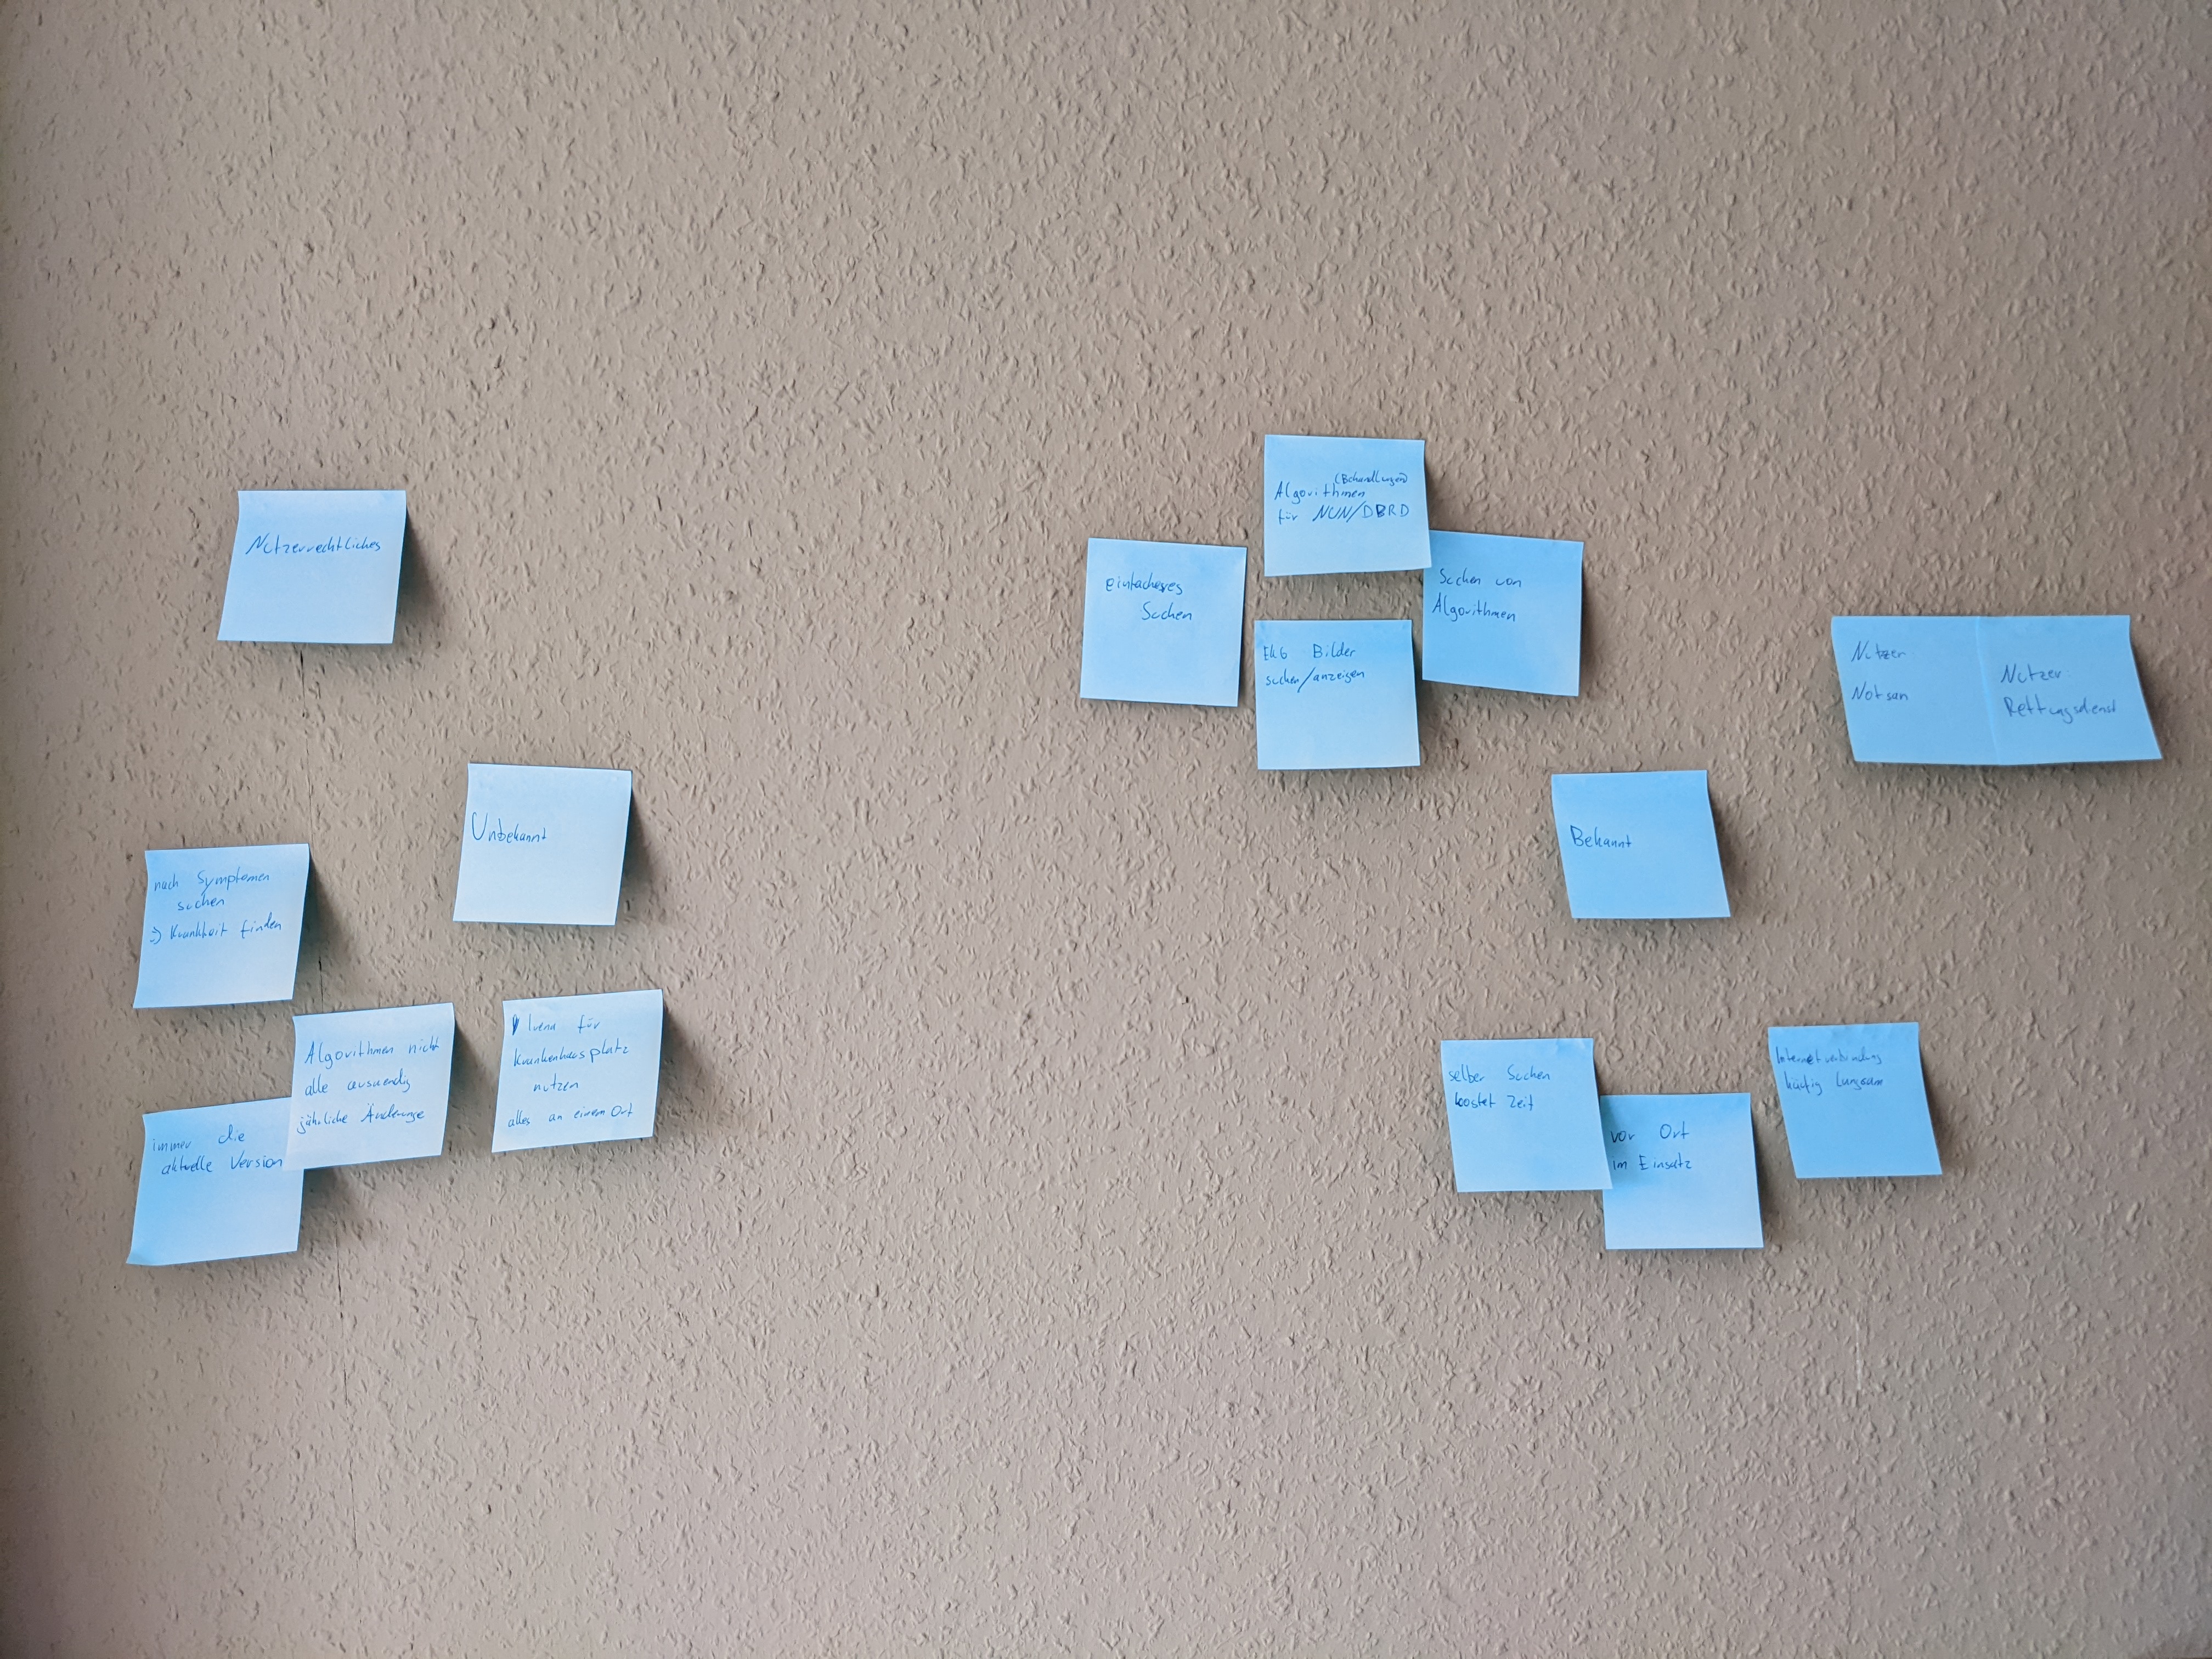 Nutzerrechtliches
Unbekannt
nach Symptomen
suchen
=> Krankheit finden
Algorithmen nicht
alle auswendig
jährliche Änderunge
Ivena für
Krankenhausplatz
nutzen
alles an einem Ort
immer die
aktuelle Version
(Behandlungen)
Algorithmen
für NUN/DBRD
einfacheres
Suchen
Suchen von
Algorithmen
EKG Bilder
suchen/anzeigen
Nutzer
Notsan
Nutzer:
Rettungsdienst
Bekannt
selber Suchen
kostet Zeit
vor Ort
im Einsatz
Internetverbindung
häufig langsam